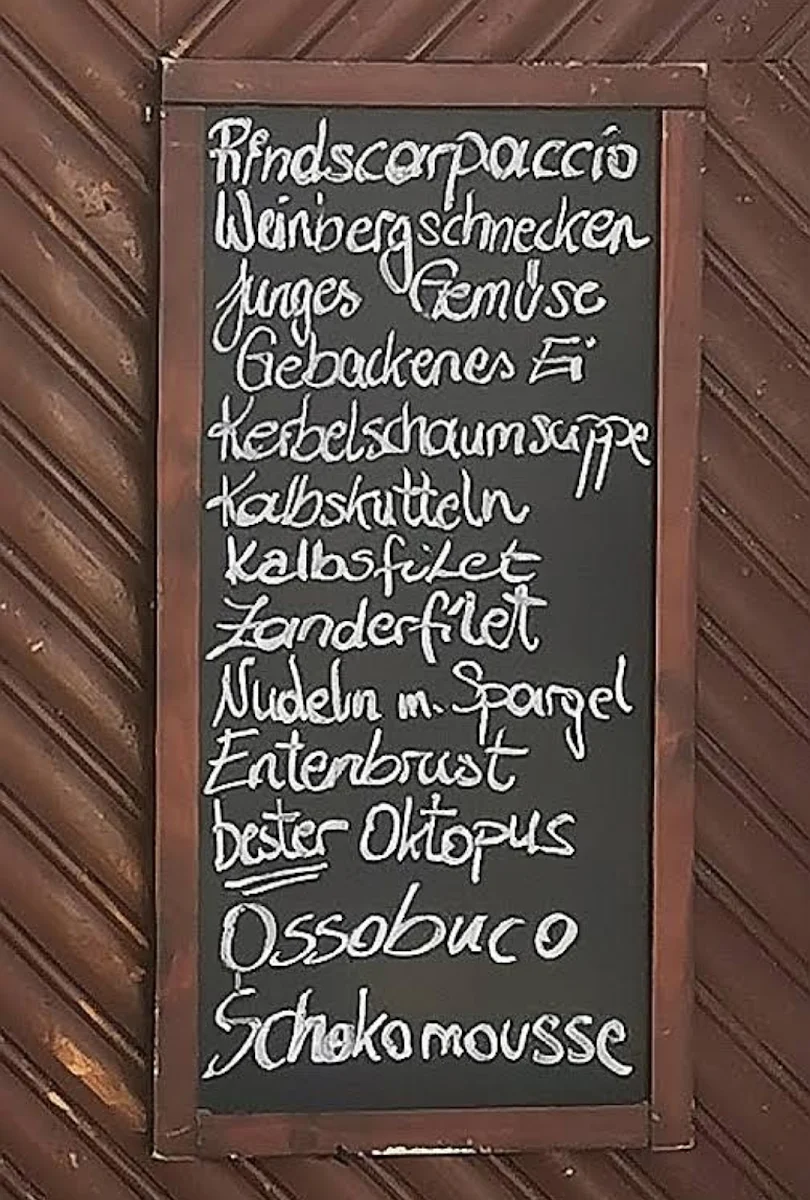 Rindscarpaccio
Weinbergschnecken
junges Gemüse
Gebackenes Ei
Kerbelschaumsuppe
Kalbskutteln
Kalbsfilet
Zanderfilet
Nudeln m. Spargel
Entenbrust
bester Oktopus
Ossobuco
Schokomousse